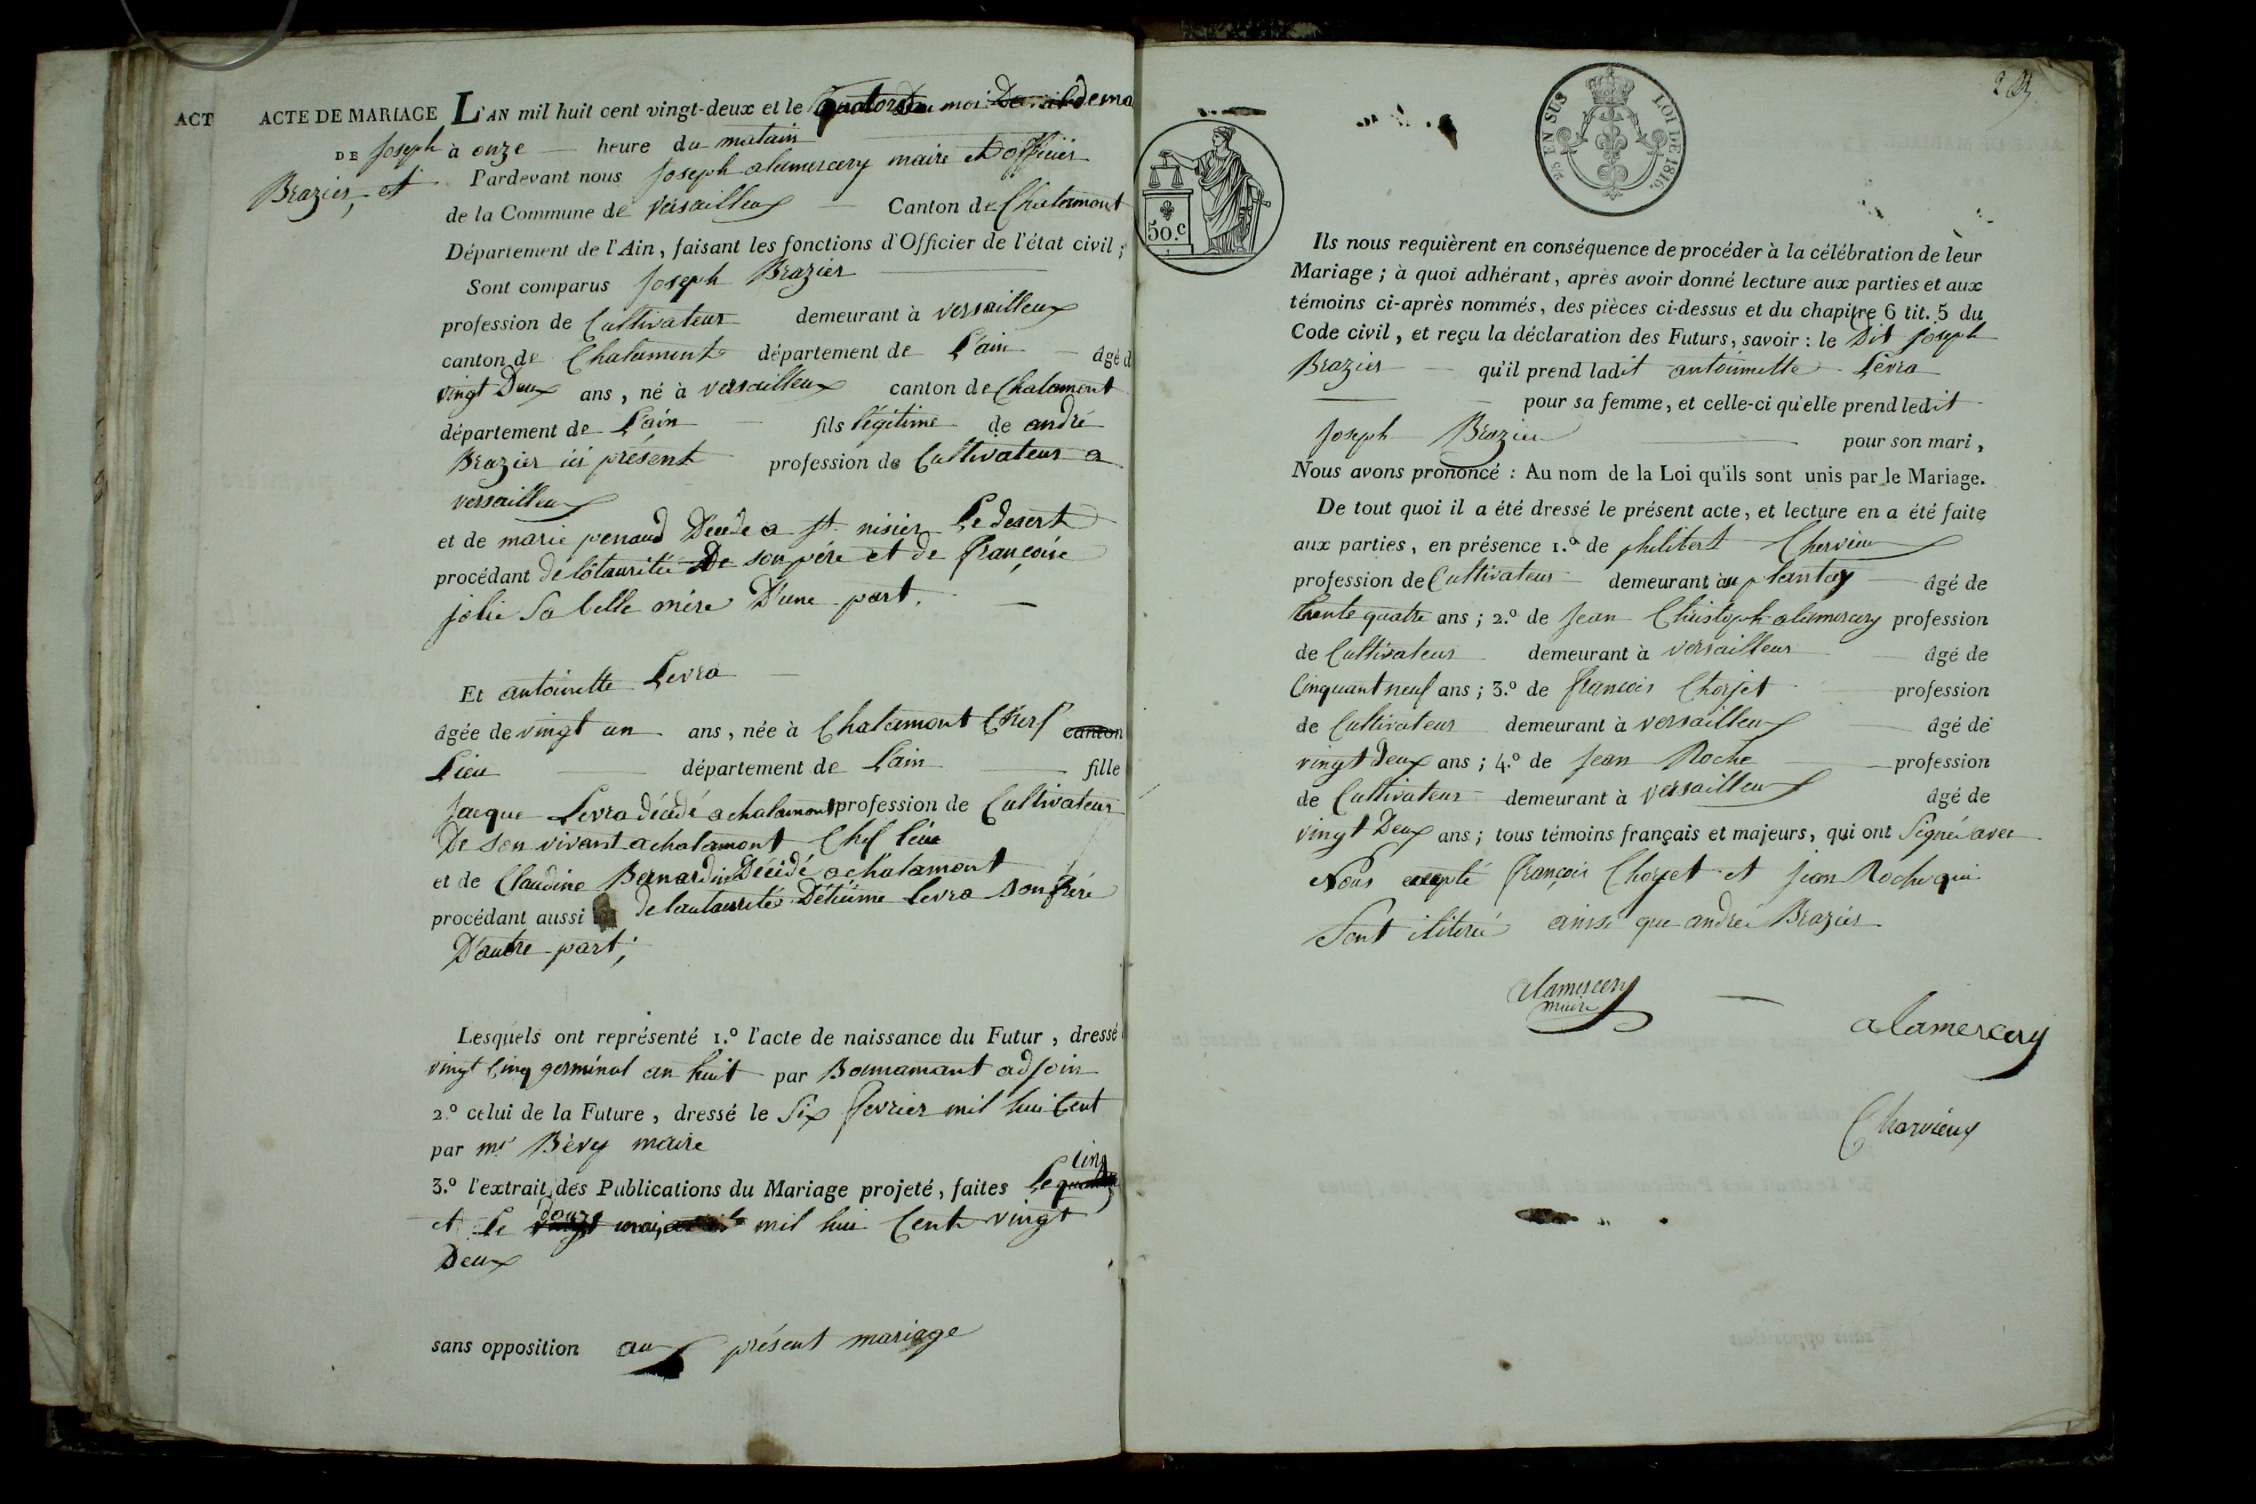 ACT
ACTE DE MARIAGE L'AN mil huit cent vingt-deux et le quatorze du moi de ma
DE Joseph à onze heure du matain
Brazier et Pardevant nous Joseph alamercery maire et officier
de la Commune de versailleux Canton de Chalamont
Département de l'Ain, faisant les fonctions d'Officier de l'état civil ;
Sont comparus Joseph Brazier
profession de Cultivateur demeurant à versailleux
canton de Chalamont département de L'ain âgé d
vingt Deux ans, né à versailleux canton de Chalamont
département de L'ain fils légitime de andré
Brazier ici présent profession de Cultivateur a
versailleux
et de marie perraud Décédé a st nisier Le desert
procédant de lôtauritée De son père et de françoise
jolie Sa belle mère D'une part.
Et antoinette Levra
âgée de vingt un ans, née à Chalamont Cherf canton
Lieu département de L'ain fille
Jacque Levra décédé a chalamont profession de Cultivateur
De son vivant a chalamont Chef lieu
et de Claudine Bernardin Décidé a chalamont
procédant aussi de lautaurité D'étiénne Levra son frère
D'autre part ;
Lesquels ont représenté 1.º l'acte de naissance du Futur, dressé
vingt Cinq germinal an huit par Bonnamant adjoin
2.º celui de la Future, dressé le Six fevrier mil hui Cent
par mr Bévy maire
cinq
3.º l'extrait des Publications du Mariage projeté, faites Le
douze
et Le mai mil hui Cent vingt
Deux
sans opposition au présent mariage
50.c
25 EN SUS LOI DE 1816.
Ils nous requièrent en conséquence de procéder à la célébration de leur
Mariage ; à quoi adhérant, après avoir donné lecture aux parties et aux
témoins ci-après nommés, des pièces ci-dessus et du chapitre 6 tit. 5 du
Code civil, et reçu la déclaration des Futurs, savoir : le Dit Joseph
Brazier qu'il prend ladit antoinnette Levra
pour sa femme, et celle-ci qu'elle prend ledit
Joseph Brazier pour son mari,
Nous avons prononcé : Au nom de la Loi qu'ils sont unis par le Mariage.
De tout quoi il a été dressé le présent acte, et lecture en a été faite
aux parties, en présence 1.º de philibert Chervieux
profession de Cultivateur demeurant à au plantay âgé de
trente quatre ans ; 2.º de Jean Christoph alamercery profession
de Cultivateur demeurant à versailleux âgé de
Cinquant neuf ans ; 3.º de françois Chorjet profession
de Cultivateur demeurant à versailleux âgé de
vingt Deux ans ; 4.º de Jean Roche profession
de Cultivateur demeurant à versailleux âgé de
vingt Deux ans ; tous témoins français et majeurs, qui ont Signé avec
Nous excepté françois Chorjet et Jean Roche qui
Sont iliteré ainsi que andré Brazier
alamercery
maire
alamercery
Charvieux